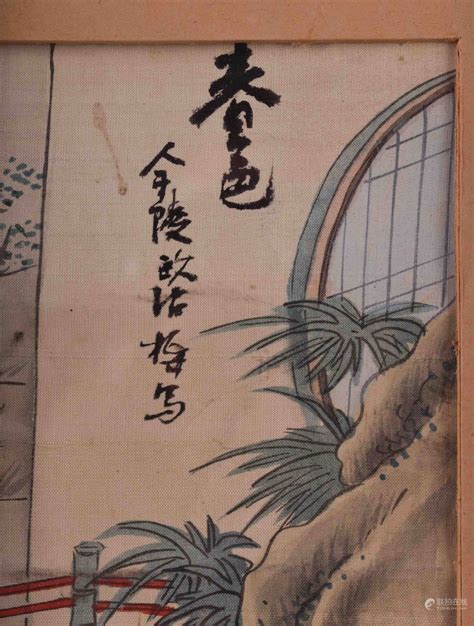 春色
金陵 梅写
联拍在线